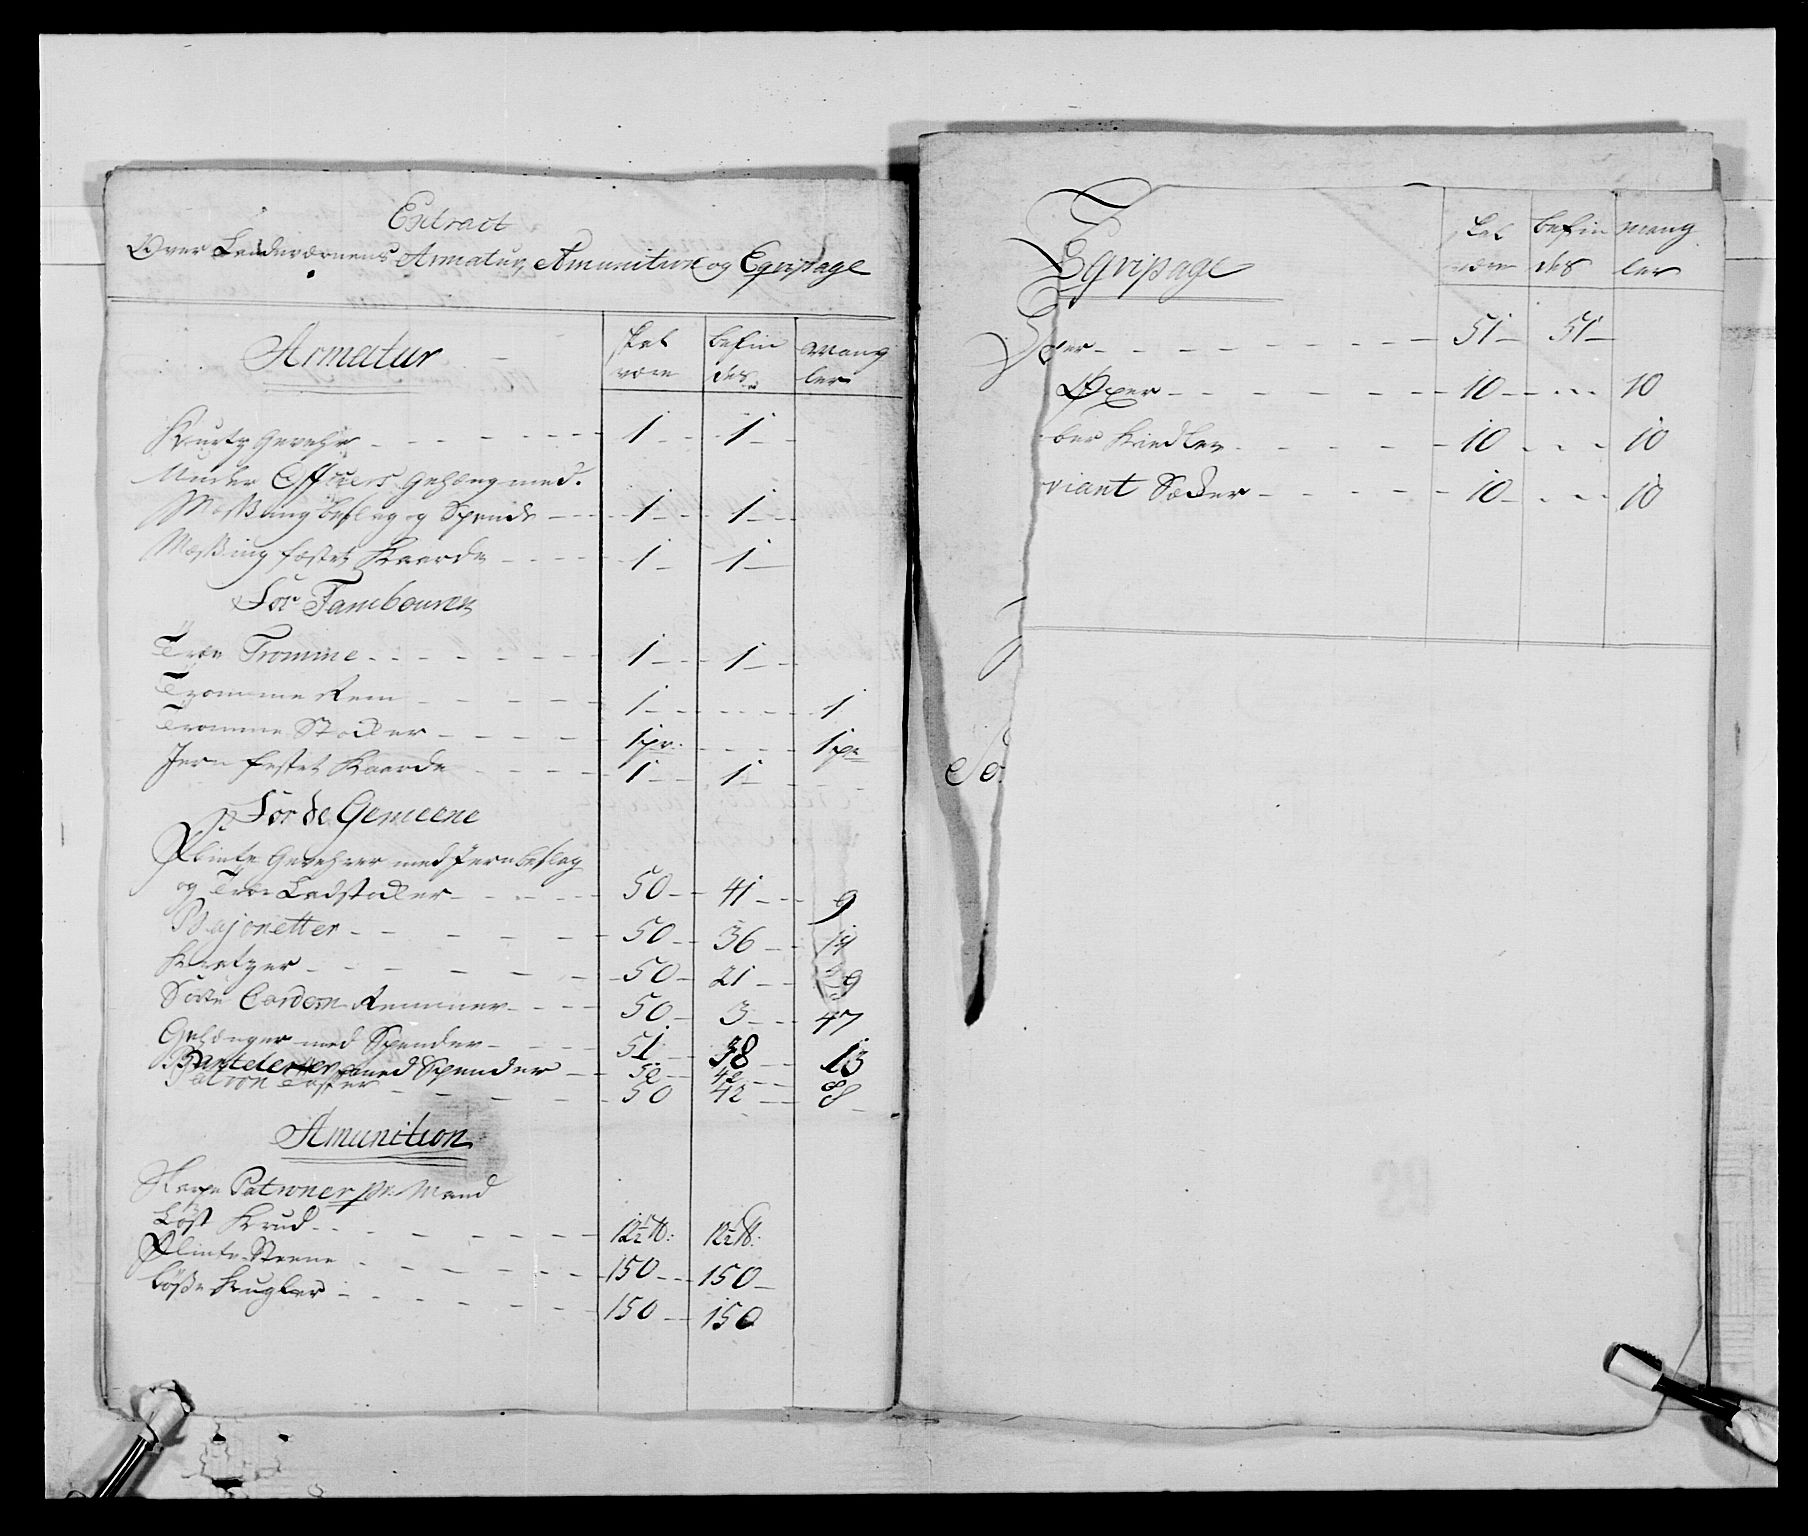 Extract
Over Landeværnens Armatur, Amunition og Eqvipage
Armatur | skal være | befindes | mangler
Kurtz Gevehr | 1 | 1
Under Officers Gehæng med
Mæssing beslag og Spende | 1 | 1
Mæssing fæstet Kaarde | 1 | 1
For Tambouren
Træe Tromme | 1 | 1
Tromme Rem | 1 | | 1
Tromme Stokker | 1 pr. | | 1 pr
Jern festet Kaarde | 1 | 1
For de Gemeene
Flinte Gevehrer med Jern beslag
og Træe Ladstokker | 50 | 41 | 9
Bajonetter | 50 | 36 | 14
Kratzer | 50 | 21 | 29
Sorte Cardon Remmer | 50 | 3 | 47
Gehænger med Spender | 51 | 38 | 13
Bantelerer med Spender | 50 | 42 | 8
Patron Tasker | 50 | 42 | 8
Amunition
Skarpe Patroner pr. Mand
Løst Krud | 12½ ℔: | 12½ ℔:
Flinte Steene | 150 | 150
Løsse Kugler | 150 | 150
Eqvipage | skal være | befindes | mangler
51 | 51
Øxer | 10 | | 10
ber Kiedler | 10 | | 10
viant Sækker | 10 | | 10
So